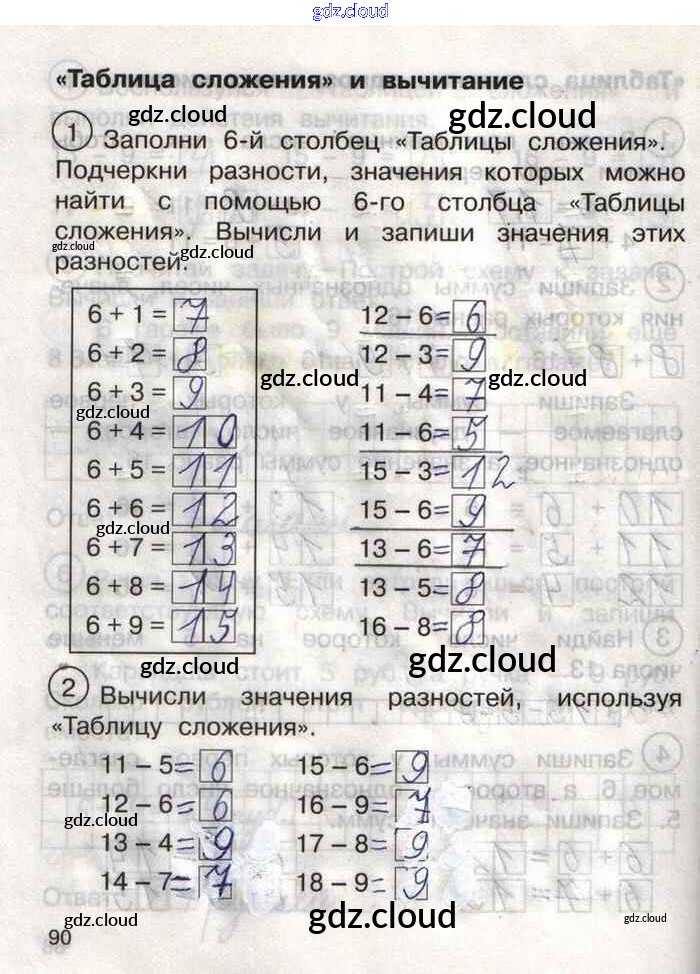 gdz.cloud
«Таблица сложения» и вычитание
gdz.cloud gdz.cloud
1 Заполни 6-й столбец «Таблицы сложения».
Подчеркни разности, значения которых можно
найти с помощью 6-го столбца «Таблицы
сложения». Вычисли и запиши значения этих
gdz.cloud gdz.cloud
разностей.
6 + 1 = 7 12 – 6 = 6
6 + 2 = 8 12 – 3 = 9
gdz.cloud gdz.cloud
6 + 3 = 9 11 – 4 = 7
gdz.cloud
6 + 4 = 10 11 – 6 = 5
6 + 5 = 11 15 – 3 = 12
6 + 6 = 12 15 – 6 = 9
gdz.cloud gdz.cloud
6 + 7 = 13 13 – 6 = 7
6 + 8 = 14 13 – 5 = 8
6 + 9 = 15 16 – 8 = 8
gdz.cloud gdz.cloud
2 Вычисли значения разностей, используя
«Таблицу сложения».
11 – 5 = 6 15 – 6 = 9
12 – 6 = 6 16 – 9 = 7
gdz.cloud gdz.cloud
13 – 4 = 9 17 – 8 = 9
14 – 7 = 7 18 – 9 = 9
gdz.cloud gdz.cloud gdz.cloud
90